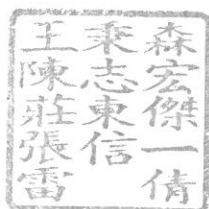 森宏傑一倩
秉志東信
王陳莊張雷